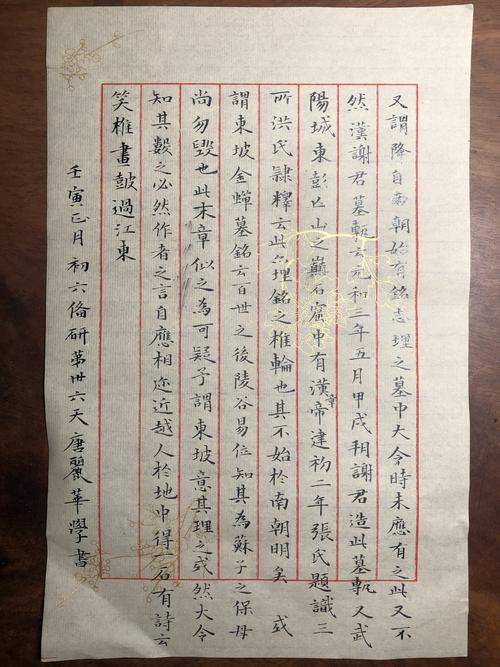 又謂降自南朝始有銘志埋之墓中大令時未應有之此又不
然漢謝君墓甎云元和三年五月甲戌朔謝君造此墓甎又武
陽城東彭亡山之巔石窟中有漢章帝建初二年張氏題識三
所洪氏隸釋云此亦埋銘之椎輪也其不始於南朝明矣 或
謂東坡金蟬墓銘云百世之後陵谷易位知其為蘇子之保母
尚勿毀也此末章似之為可疑予謂東坡意其理之或然大令
知其數之必然作者之言自應相迩近越人於地中得一石有詩云
笑椎畫鼓過江東
壬寅正月初六俻研第卅六天唐麗華學書